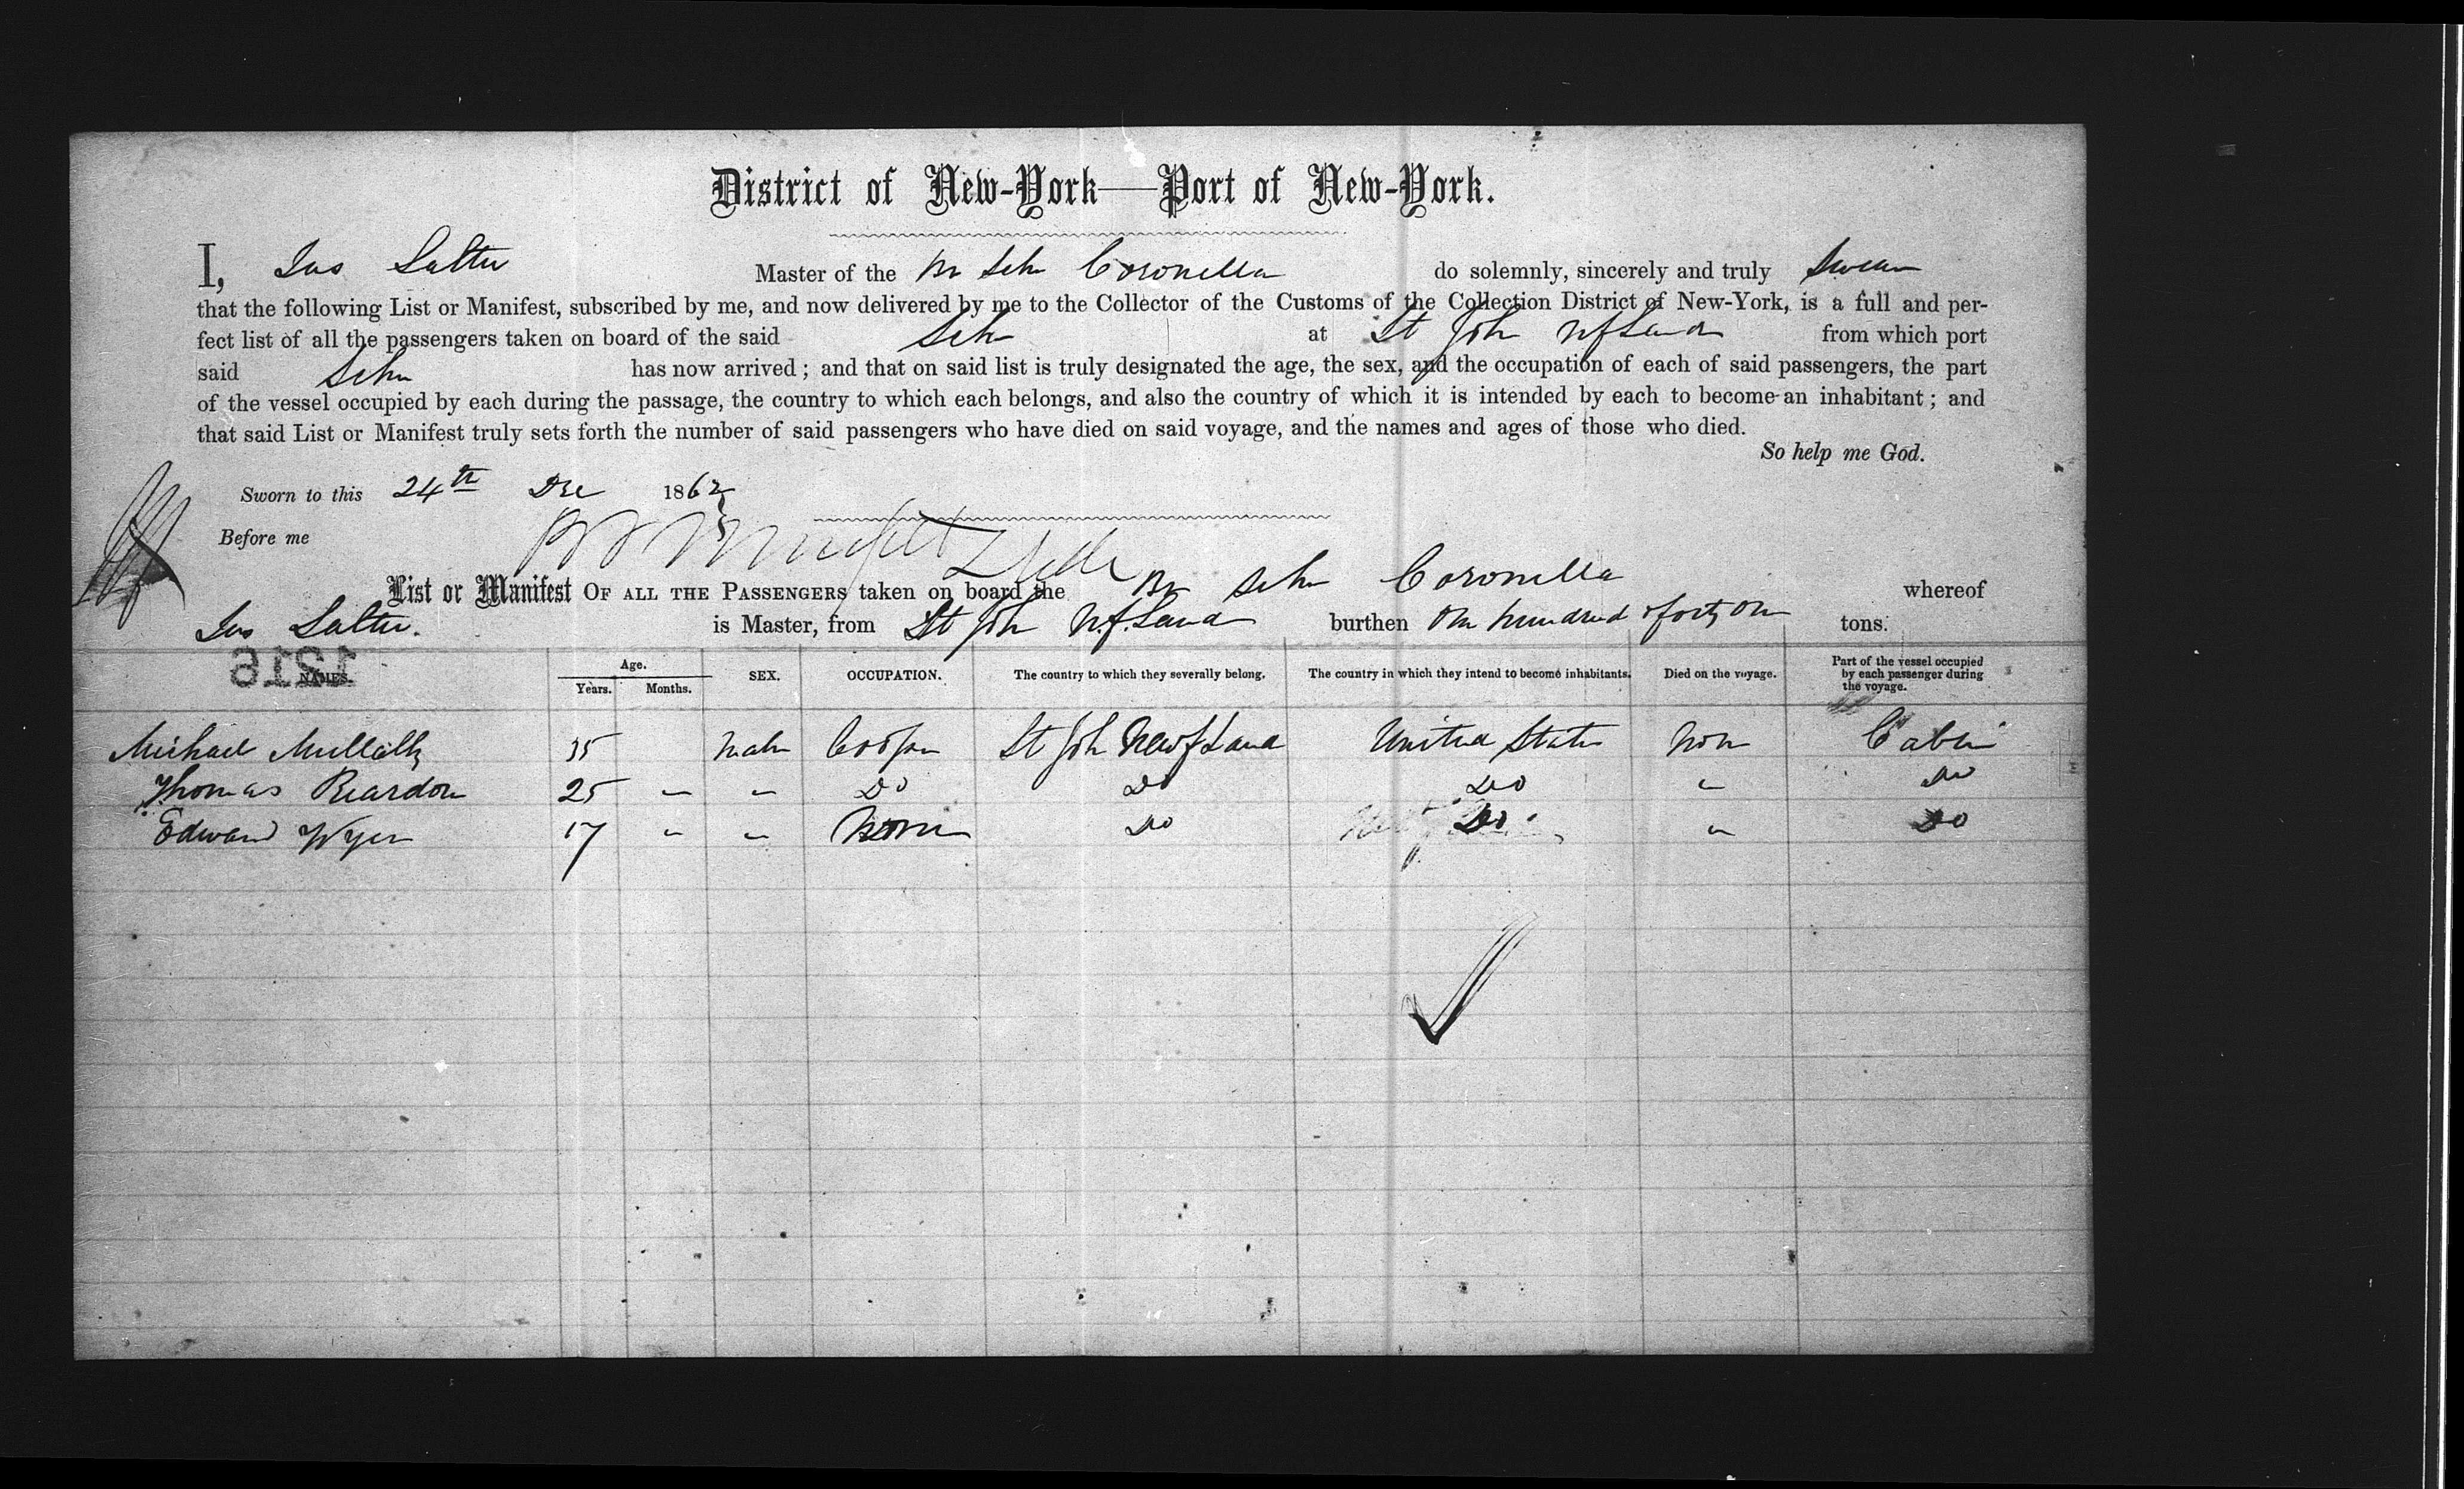 District of New-York—Port of New-York.
I, Jas Salter Master of the Br Schr Coronella do solemnly, sincerely and truly Swear
that the following List or Manifest, subscribed by me, and now delivered by me to the Collector of the Customs of the Collection District of New-York, is a full and per-
fect list of all the passengers taken on board of the said Schr at St John NfLand from which port
said Schr has now arrived; and that on said list is truly designated the age, the sex, and the occupation of each of said passengers, the part
of the vessel occupied by each during the passage, the country to which each belongs, and also the country of which it is intended by each to become an inhabitant; and
that said List or Manifest truly sets forth the number of said passengers who have died on said voyage, and the names and ages of those who died.
So help me God.
Sworn to this 24th Dec 1862
Before me
List or Manifest OF ALL THE PASSENGERS taken on board the Br Schr Coronella whereof
Jas Salter. is Master, from St John N.f.Land burthen One hundred & forty one tons.
1216
NAMES. Age. Years. Months. SEX. OCCUPATION. The country to which they severally belong. The country in which they intend to become inhabitants. Died on the voyage. Part of the vessel occupied by each passenger during the voyage.
Michael Mullally 35 Male Cooper St Joh NewfLand United States Non Cabin
Thomas Reardon 25 " " Do Do Do " Do
Edward Wyer 17 " " None Do Do " Do